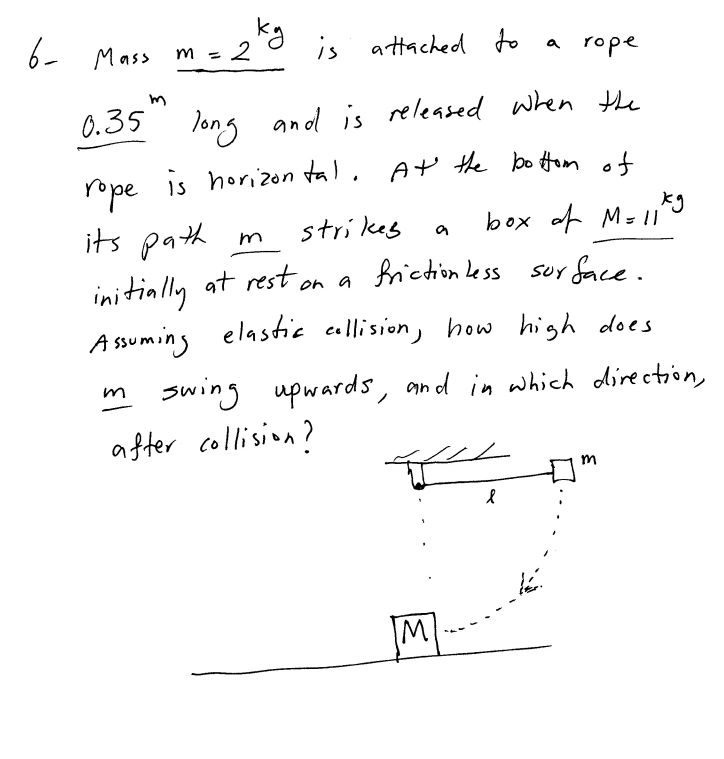 6- Mass m = 2 kg is attached to a rope
0.35 m long and is released when the
rope is horizontal. At the bottom of
its path m strikes a box of M = 11 kg
initially at rest on a frictionless surface.
Assuming elastic collision, how high does
m swing upwards, and in which direction,
after collision?
m
l
M